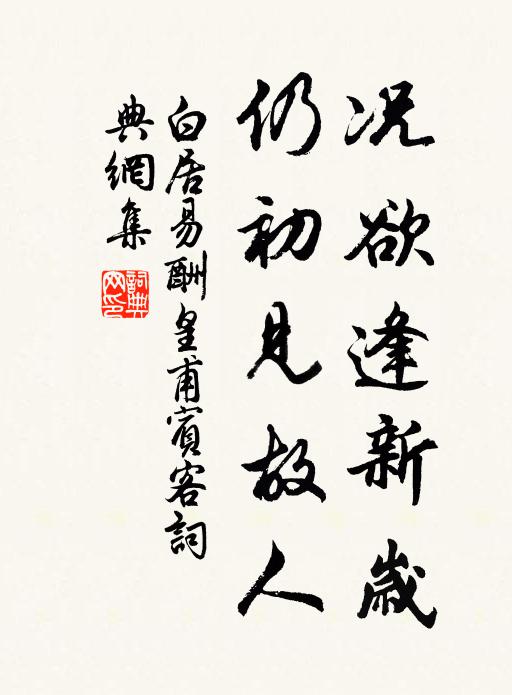 况欲逢新歲
仍初見故人
白居易酬皇甫賓客詞
典網集
詞典網印